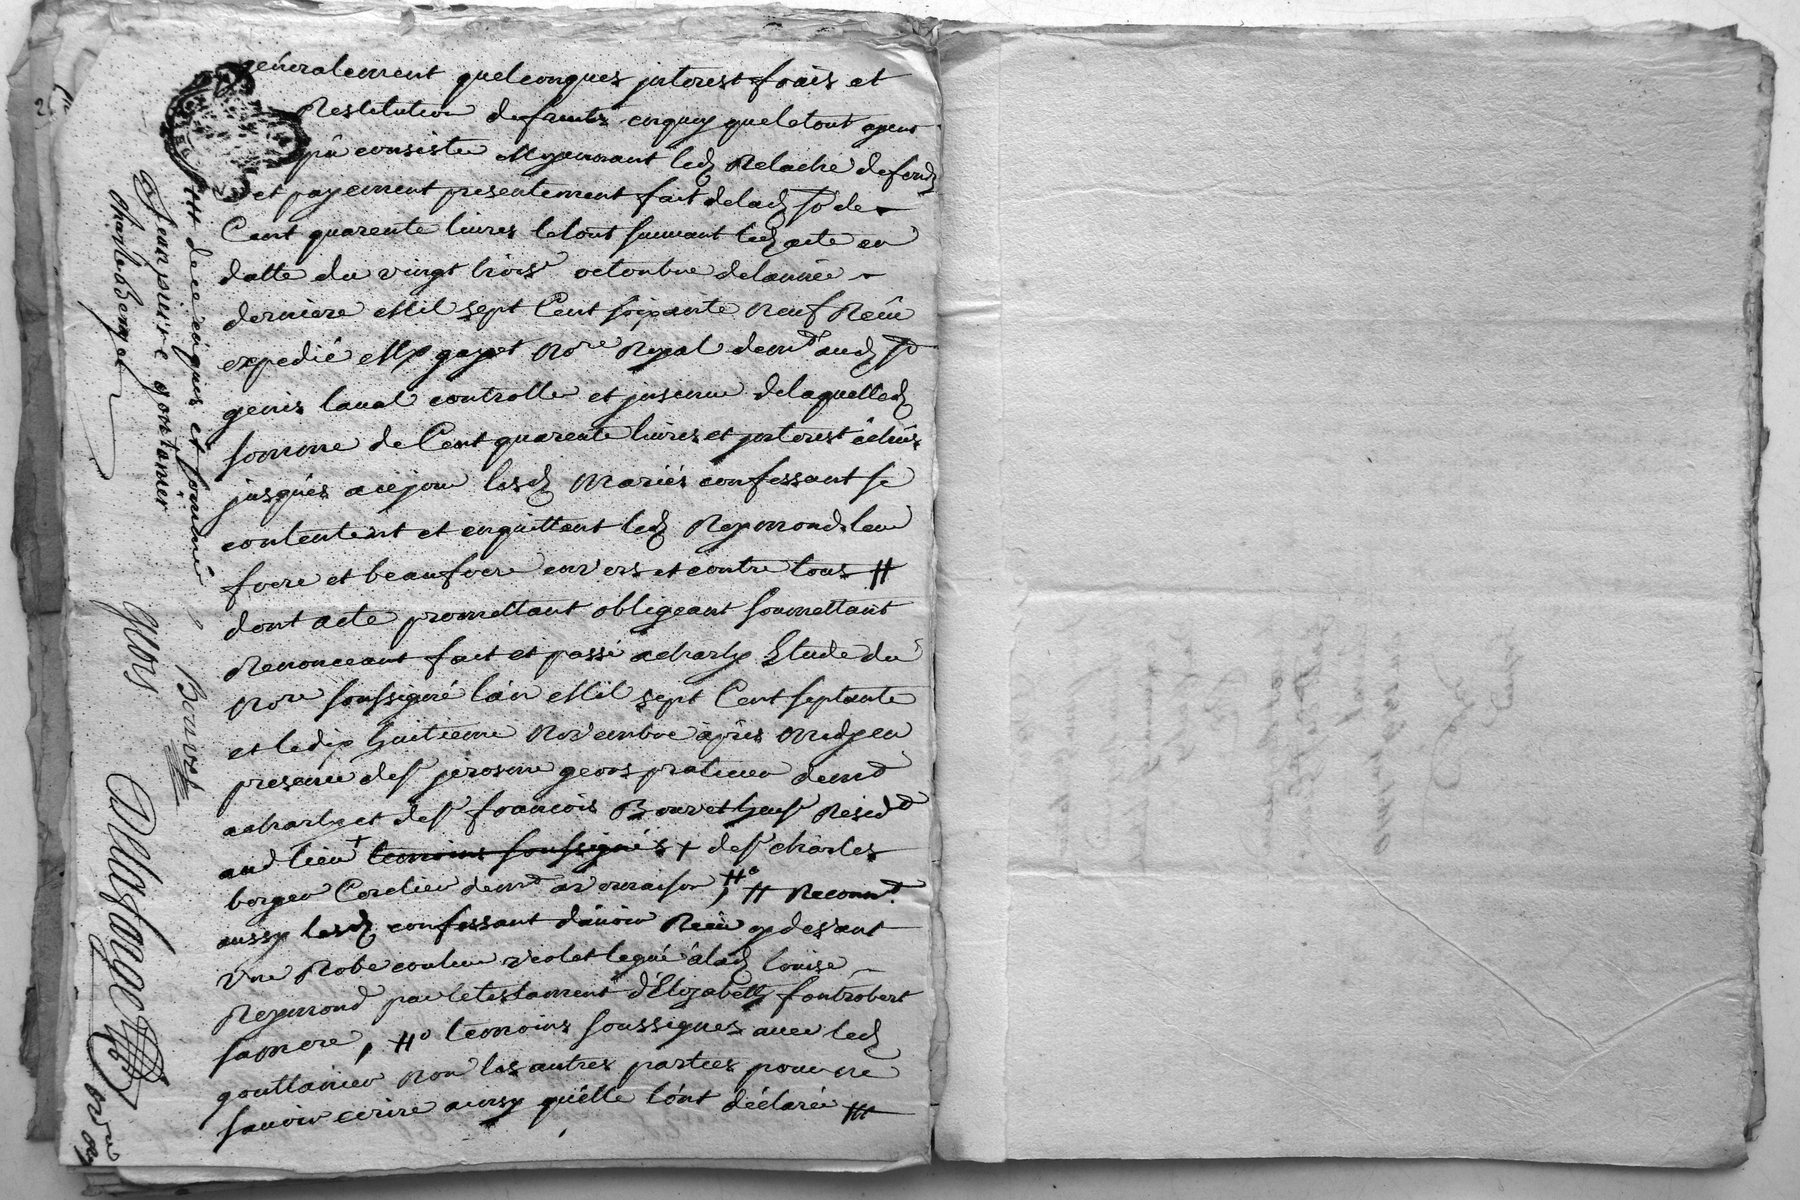 généralement quelconques jnterest frais et
Restitution de fruits enquoy que letout ayent
pû consister Moyennant led Relaché de fond
et payement presentement fait delad so de
Cent quarente livres letout suivant led acte en
datte du vingt trois octoubre delannée
derniere Mil sept Cent soixante Neuf Reçu
expedié Me Nore Royal demt aud St
genis laval controllé et jnsinué delaquelle d
somme de Cent quarente livres et jnterest échus
jusqués a cejour lesd Mariés confessant se
contentent et enquittent led Reymond leur
frere et beaufrere envers et contre tous #
dont acte promettant obligeant soumettant
Renonceant fait et passé acharly Etude du
Nore soussigné l'an Mil sept Cent septante
et ledix huitieme Novembre àprès midy en
presence de sr jerosme geors praticien demt
acharly et de sr francois Bourvet Resid
aud lieu temoins soussignés + de sr charles
berger Cordier demt a vourraison, #o # Reconnt
aussy lesd confessant d'avoir Reçu cy devant
Une Robe couleur violet legué à lad louise
Reymond par letestament d'Elizabeth fontrobert
samere, #o temoins soussignes avec led
gonttanier Non les autres parties pour ne
savoir ecrire ainsy qu'elle l'ont déclaré
de ce enquis et sommé
Jean pierre gontanier
Charle Berger
gurs
Bourvet
Delasfage Nore